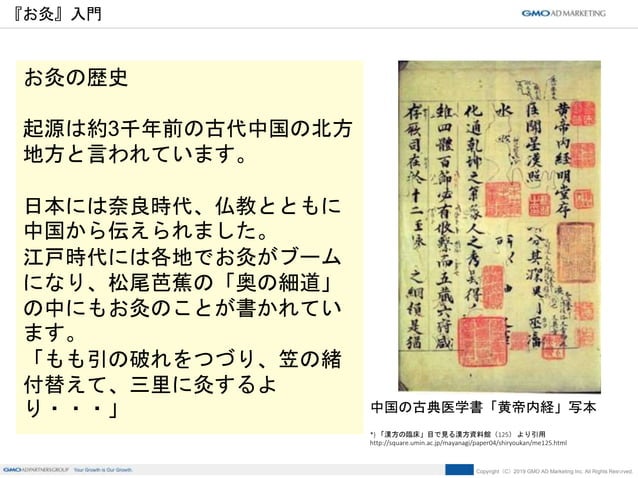 『お灸』入門
GMO AD MARKETING
お灸の歴史
起源は約3千年前の古代中国の北方
地方と言われています。
日本には奈良時代、仏教とともに
中国から伝えられました。
江戸時代には各地でお灸がブーム
になり、松尾芭蕉の「奥の細道」
の中にもお灸のことが書かれてい
ます。
「もも引の破れをつづり、笠の緒
付替えて、三里に灸するよ
り・・・」
黄帝内経明堂序
臣聞星漢照
化通乾坤之象人之秀異得
雖四體百節必有攸繫而五藏六府咸
存厥司在於十二經脉之綱領是猶
中国の古典医学書「黄帝内経」写本
*) 「漢方の臨床」目で見る漢方資料館（125） より引用
http://square.umin.ac.jp/mayanagi/paper04/shiryoukan/me125.html
GMO ADPARTNERS GROUP Your Growth is Our Growth.
Copyright （C） 2019 GMO AD Marketing Inc. All Rights Reserved.